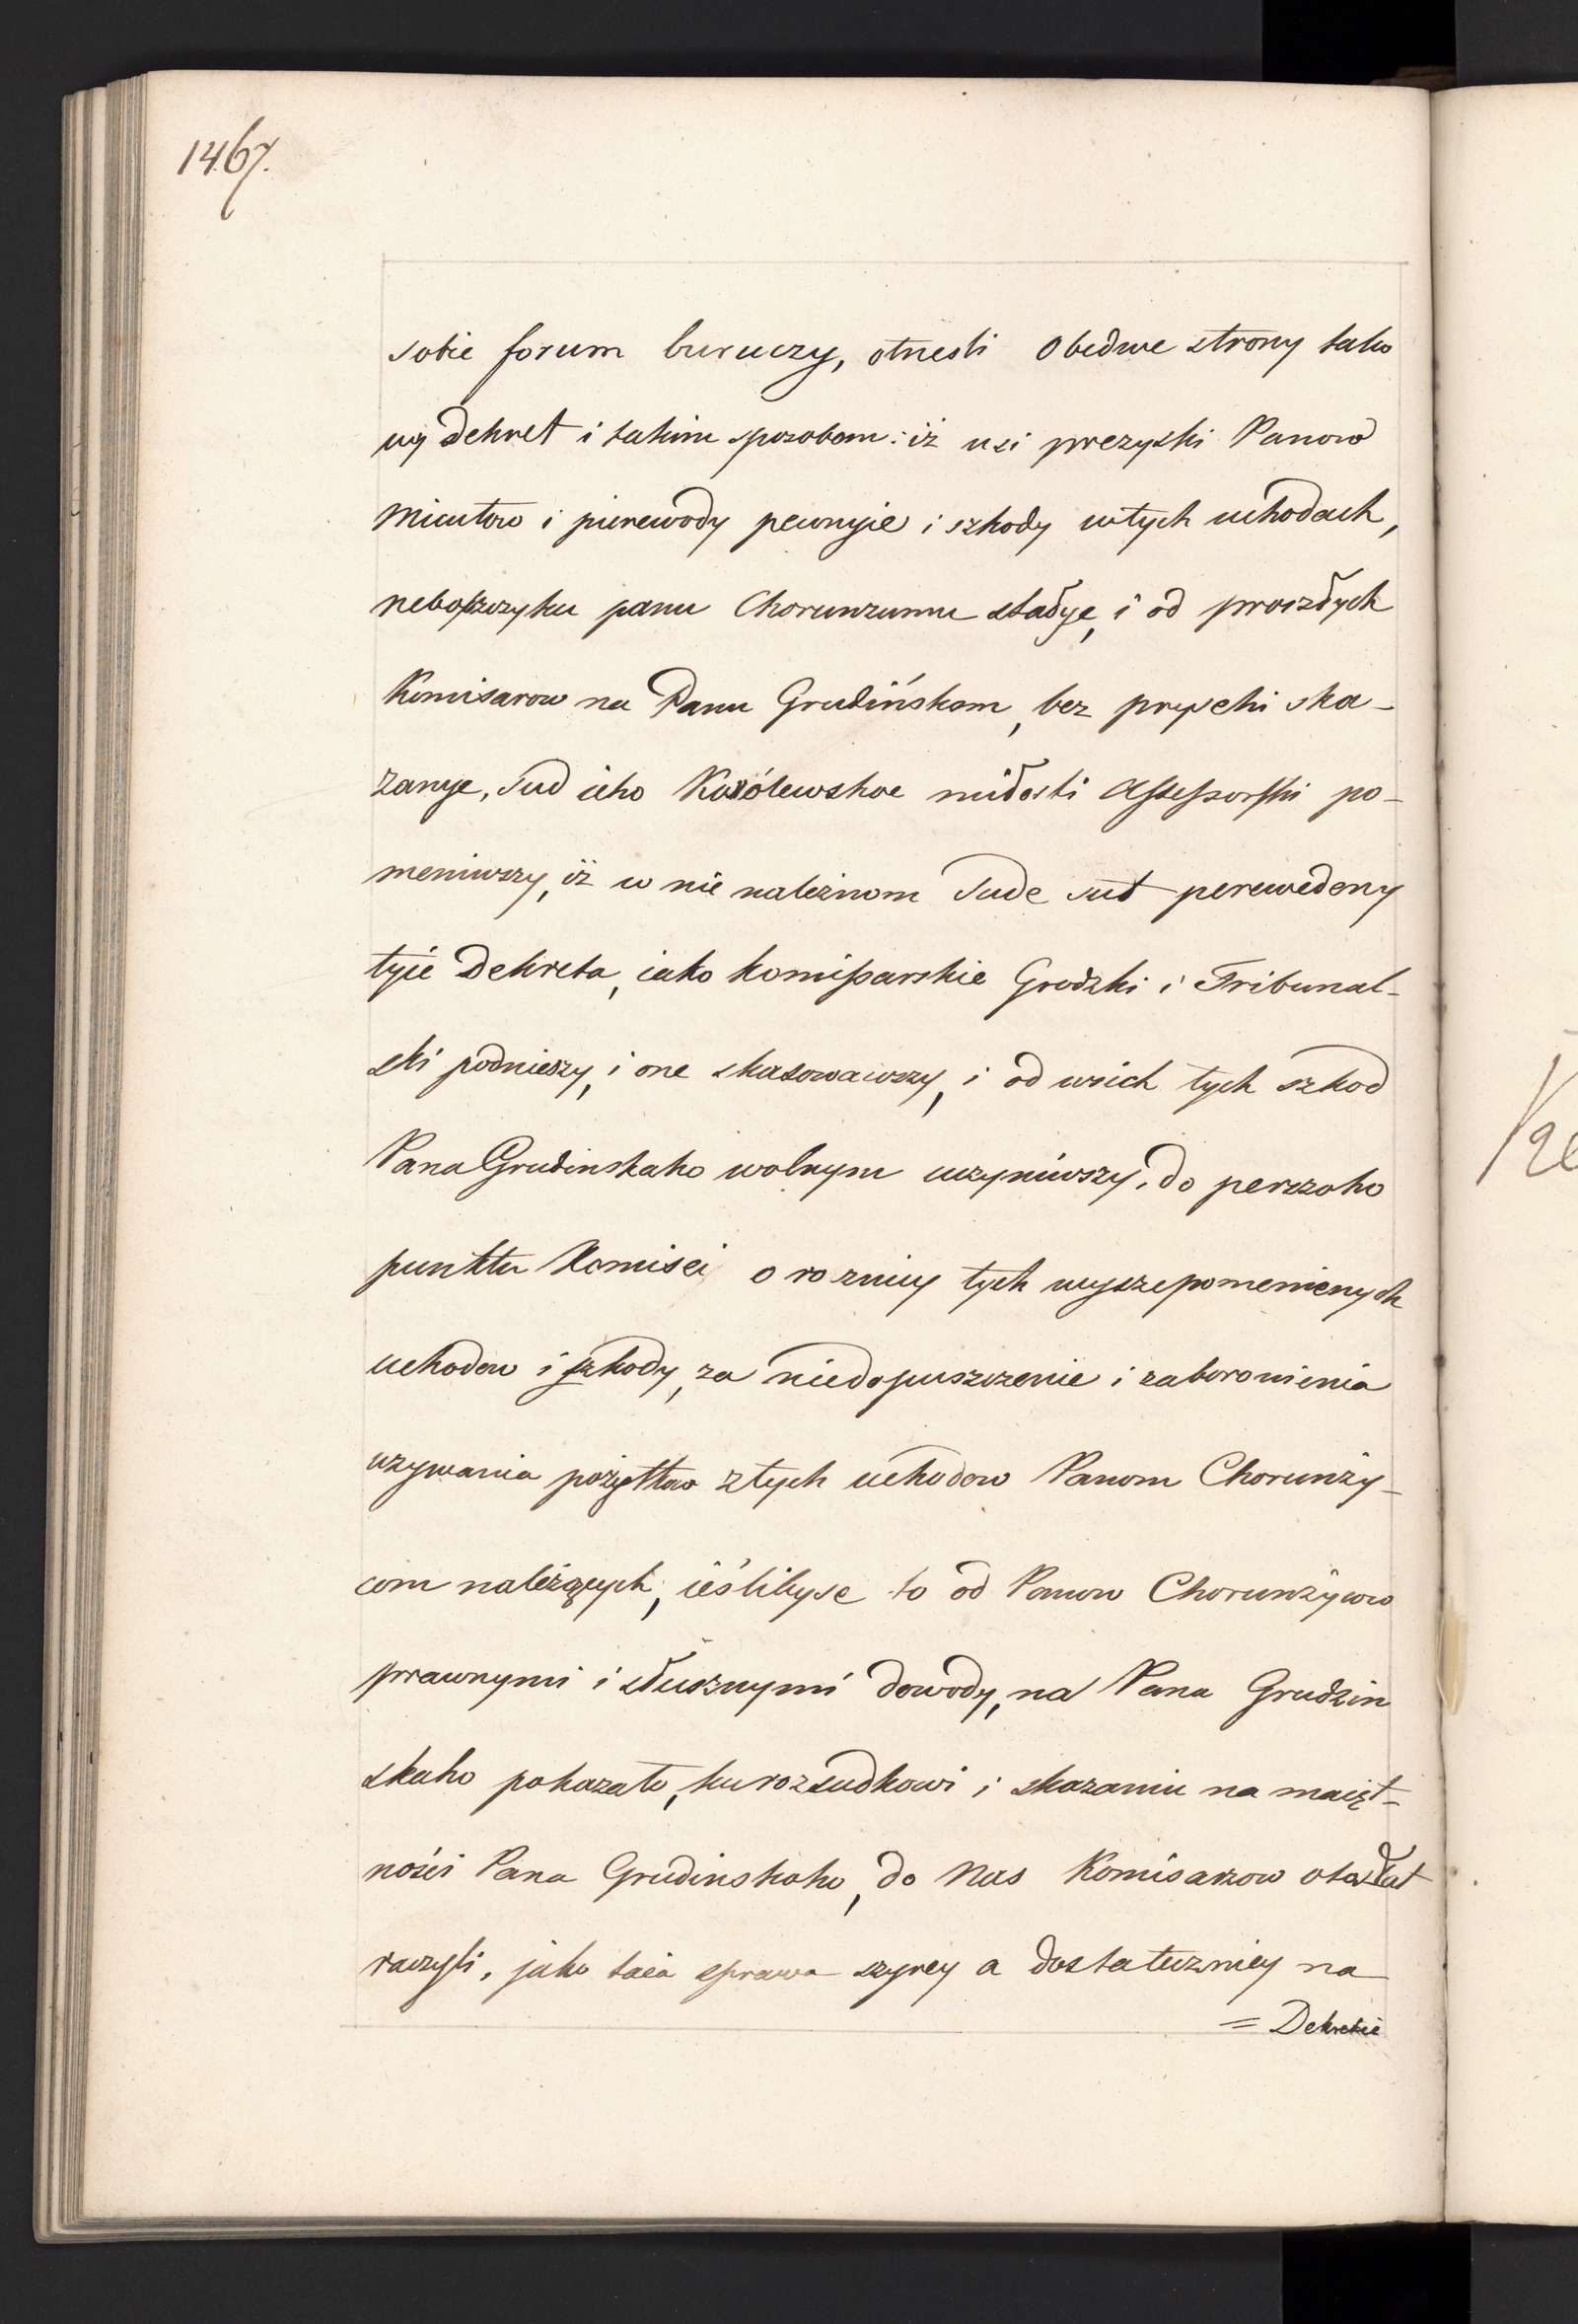 1467.
sobie forum buruczy, otnesli obedwe strony tako
wy dekret i takim sposobom: iż usi prezyski Panow
Micutow i pierewody pewnyie i szkody wtych uchodach,
neboszczyku panu Chorunzumu stałye, i od proszłych
Komisarow na Panu Grudińskom, bez prysehi ska-
zanye, Sud ieho Korólewskoe miłosti Assessorski po-
meniwszy, iż w nie należnom Sude sut perewedeny
tyie Dekreta, iako komissarskie Grodzki i Tribunal-
ski podnieszy, i one skasowawszy, i od wsich tych szkod
Pana Grudinskaho wolnym uczyniwszy, do perszoho
punktu Komisei o roznicy tych wyszepomenienych
uchodow i szkody, za niedopuszczenie i zaboronienia
uzywania pożytkow ztych uchodow Panom Chorunży-
com należących, ieślibyse to od Panow Chorunżycow
prawnymi i słusznymi dowody, na Pana Grudzin
skaho pokazało, ku rozsudkowi i skazaniu na maięt-
ności Pana Grudinskoho, do Nas Komisarzow otosłat
raczyli, jako taia sprawa szyrey a dostateczniey na
= Dekretie